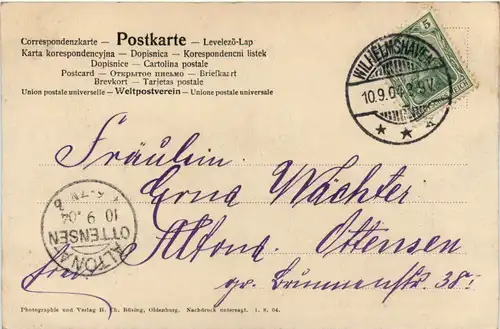 Correspondenzkarte — Postkarte — Levelező-Lap
Karta korespondencyjna — Dopisnica — Korespondencni listek
Dopisnice — Cartolina postale
Postcard — Открытое письмо — Briefkaart
Brevkort — Tarjetas postale
Union postale universelle — Weltpostverein — Unione postale universale
5
WILHELMSHAVEN
10.9.04
Fräulein
Erna Wächter
Altona Ottensen
gr. Brunnenstr. 38
ALTONA
OTTENSEN
10 9 .04
Photographie und Verlag H. Th. Büsing, Oldenburg. Nachdruck untersagt. 1. 8. 04.